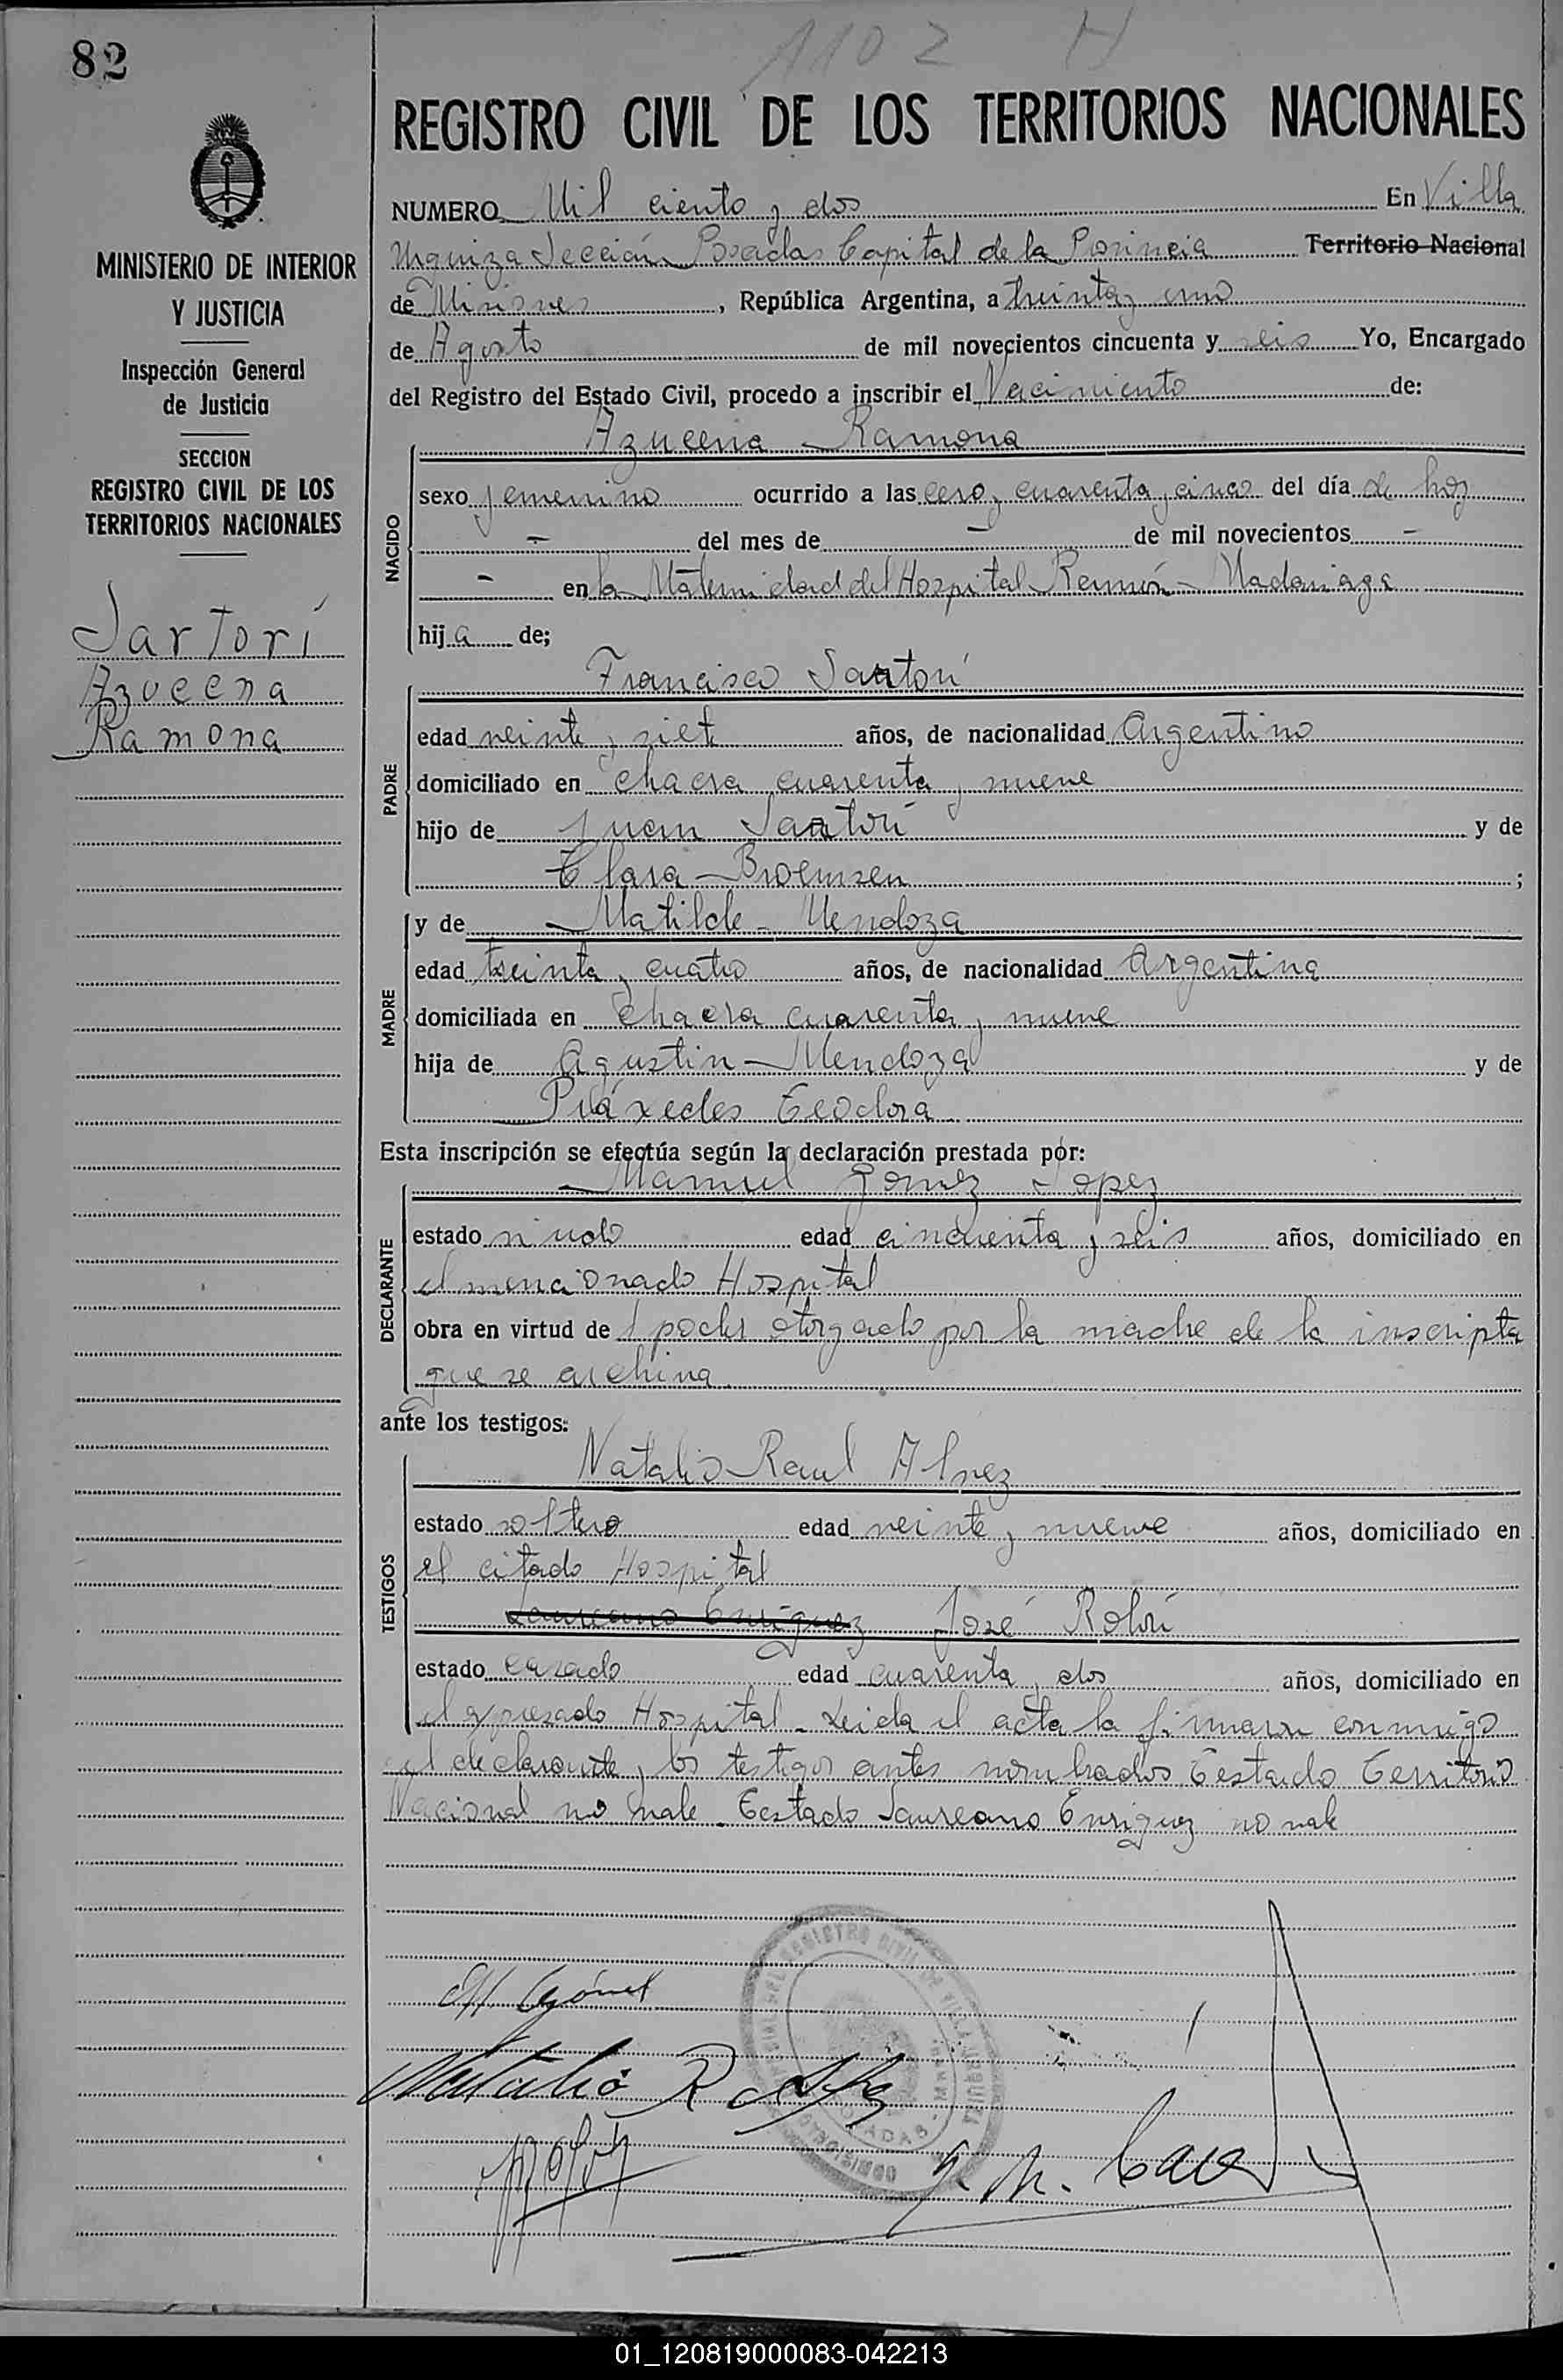 82
1102 H
REGISTRO CIVIL DE LOS TERRITORIOS NACIONALES
MINISTERIO DE INTERIOR
Y JUSTICIA
Inspección General
de Justicia
SECCION
REGISTRO CIVIL DE LOS
TERRITORIOS NACIONALES
Sartori
Azucena
Ramona
NUMERO Mil ciento y dos En Villa
Urquiza Sección Posadas Capital de la Provincia Territorio Nacional
de Misiones, República Argentina, a treinta y uno
de Agosto de mil novecientos cincuenta y seis Yo, Encargado
del Registro del Estado Civil, procedo a inscribir el Nacimiento de:
Azucena Ramona
NACIDO
sexo femenino ocurrido a las cero y cuarenta y cinco del día de hoy
- del mes de - de mil novecientos -
- en la Maternidad del Hospital Ramón Madariaga
hija de;
Francisco Sartori
PADRE
edad veinte y siete años, de nacionalidad Argentino
domiciliado en chacra cuarenta y nueve
hijo de Juan Sartori y de
Clara Broemsen ;
MADRE
y de Matilde Mendoza
edad treinta y cuatro años, de nacionalidad Argentina
domiciliada en chacra cuarenta y nueve
hija de Agustin Mendoza y de
Práxedes Teodora
Esta inscripción se efectúa según la declaración prestada por:
Manuel Gomez Lopez
DECLARANTE
estado viudo edad cincuenta y seis años, domiciliado en
el mencionado Hospital
obra en virtud de poder otorgado por la madre de la inscripta
que se archiva
ante los testigos:
Natalio Raul Alvez
TESTIGOS
estado soltero edad veinte y nueve años, domiciliado en
el citado Hospital
Laureano Enriquez José Rolón
estado casado edad cuarenta y dos años, domiciliado en
el expresado Hospital. Leida el acta la firmaron conmigo
el declarante y los testigos antes nombrados Testado Territorio
Nacional no vale. Testado Laureano Enriquez no vale
M Gómez
Natalio R
01_120819000083-042213